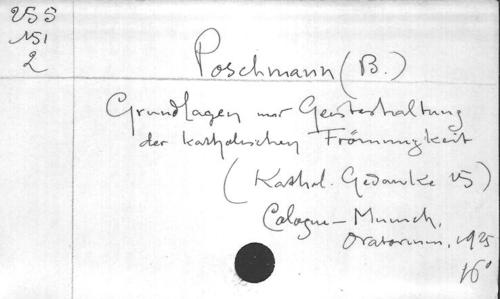 255
151
2
Poschmann (B.)
Grundlagen und Geisteshaltung
der katholischen Frömmigkeit
(Kathol. Gedanke 15)
Cologne-Munich,
Oratorium, 1925
16°